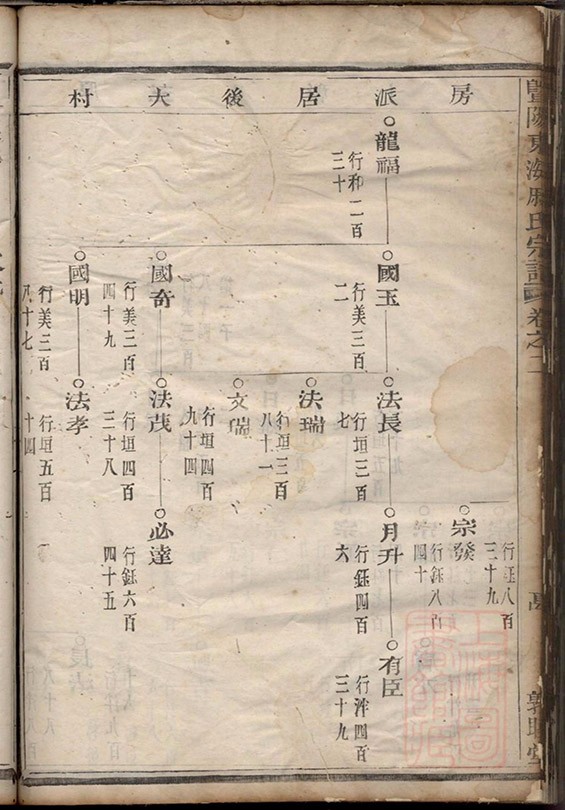 房派居後大村
行鈺八百
三十九
宗發
行鈺八百
四十
龍福
行和二百
三十
國玉
行美三百
二
法長
行垣三百
七
月升
行鈺四百
六
有臣
行泮四百
三十九
法瑞
行垣三百
八十一
文瑞
行垣四百
九十四
國奇
行美三百
四十九
法茂
行垣四百
三十八
必達
行鈺六百
四十五
國明
行美三百
八十七
法孝
行垣五百
十四
暨陽東海 氏宗譜 卷之